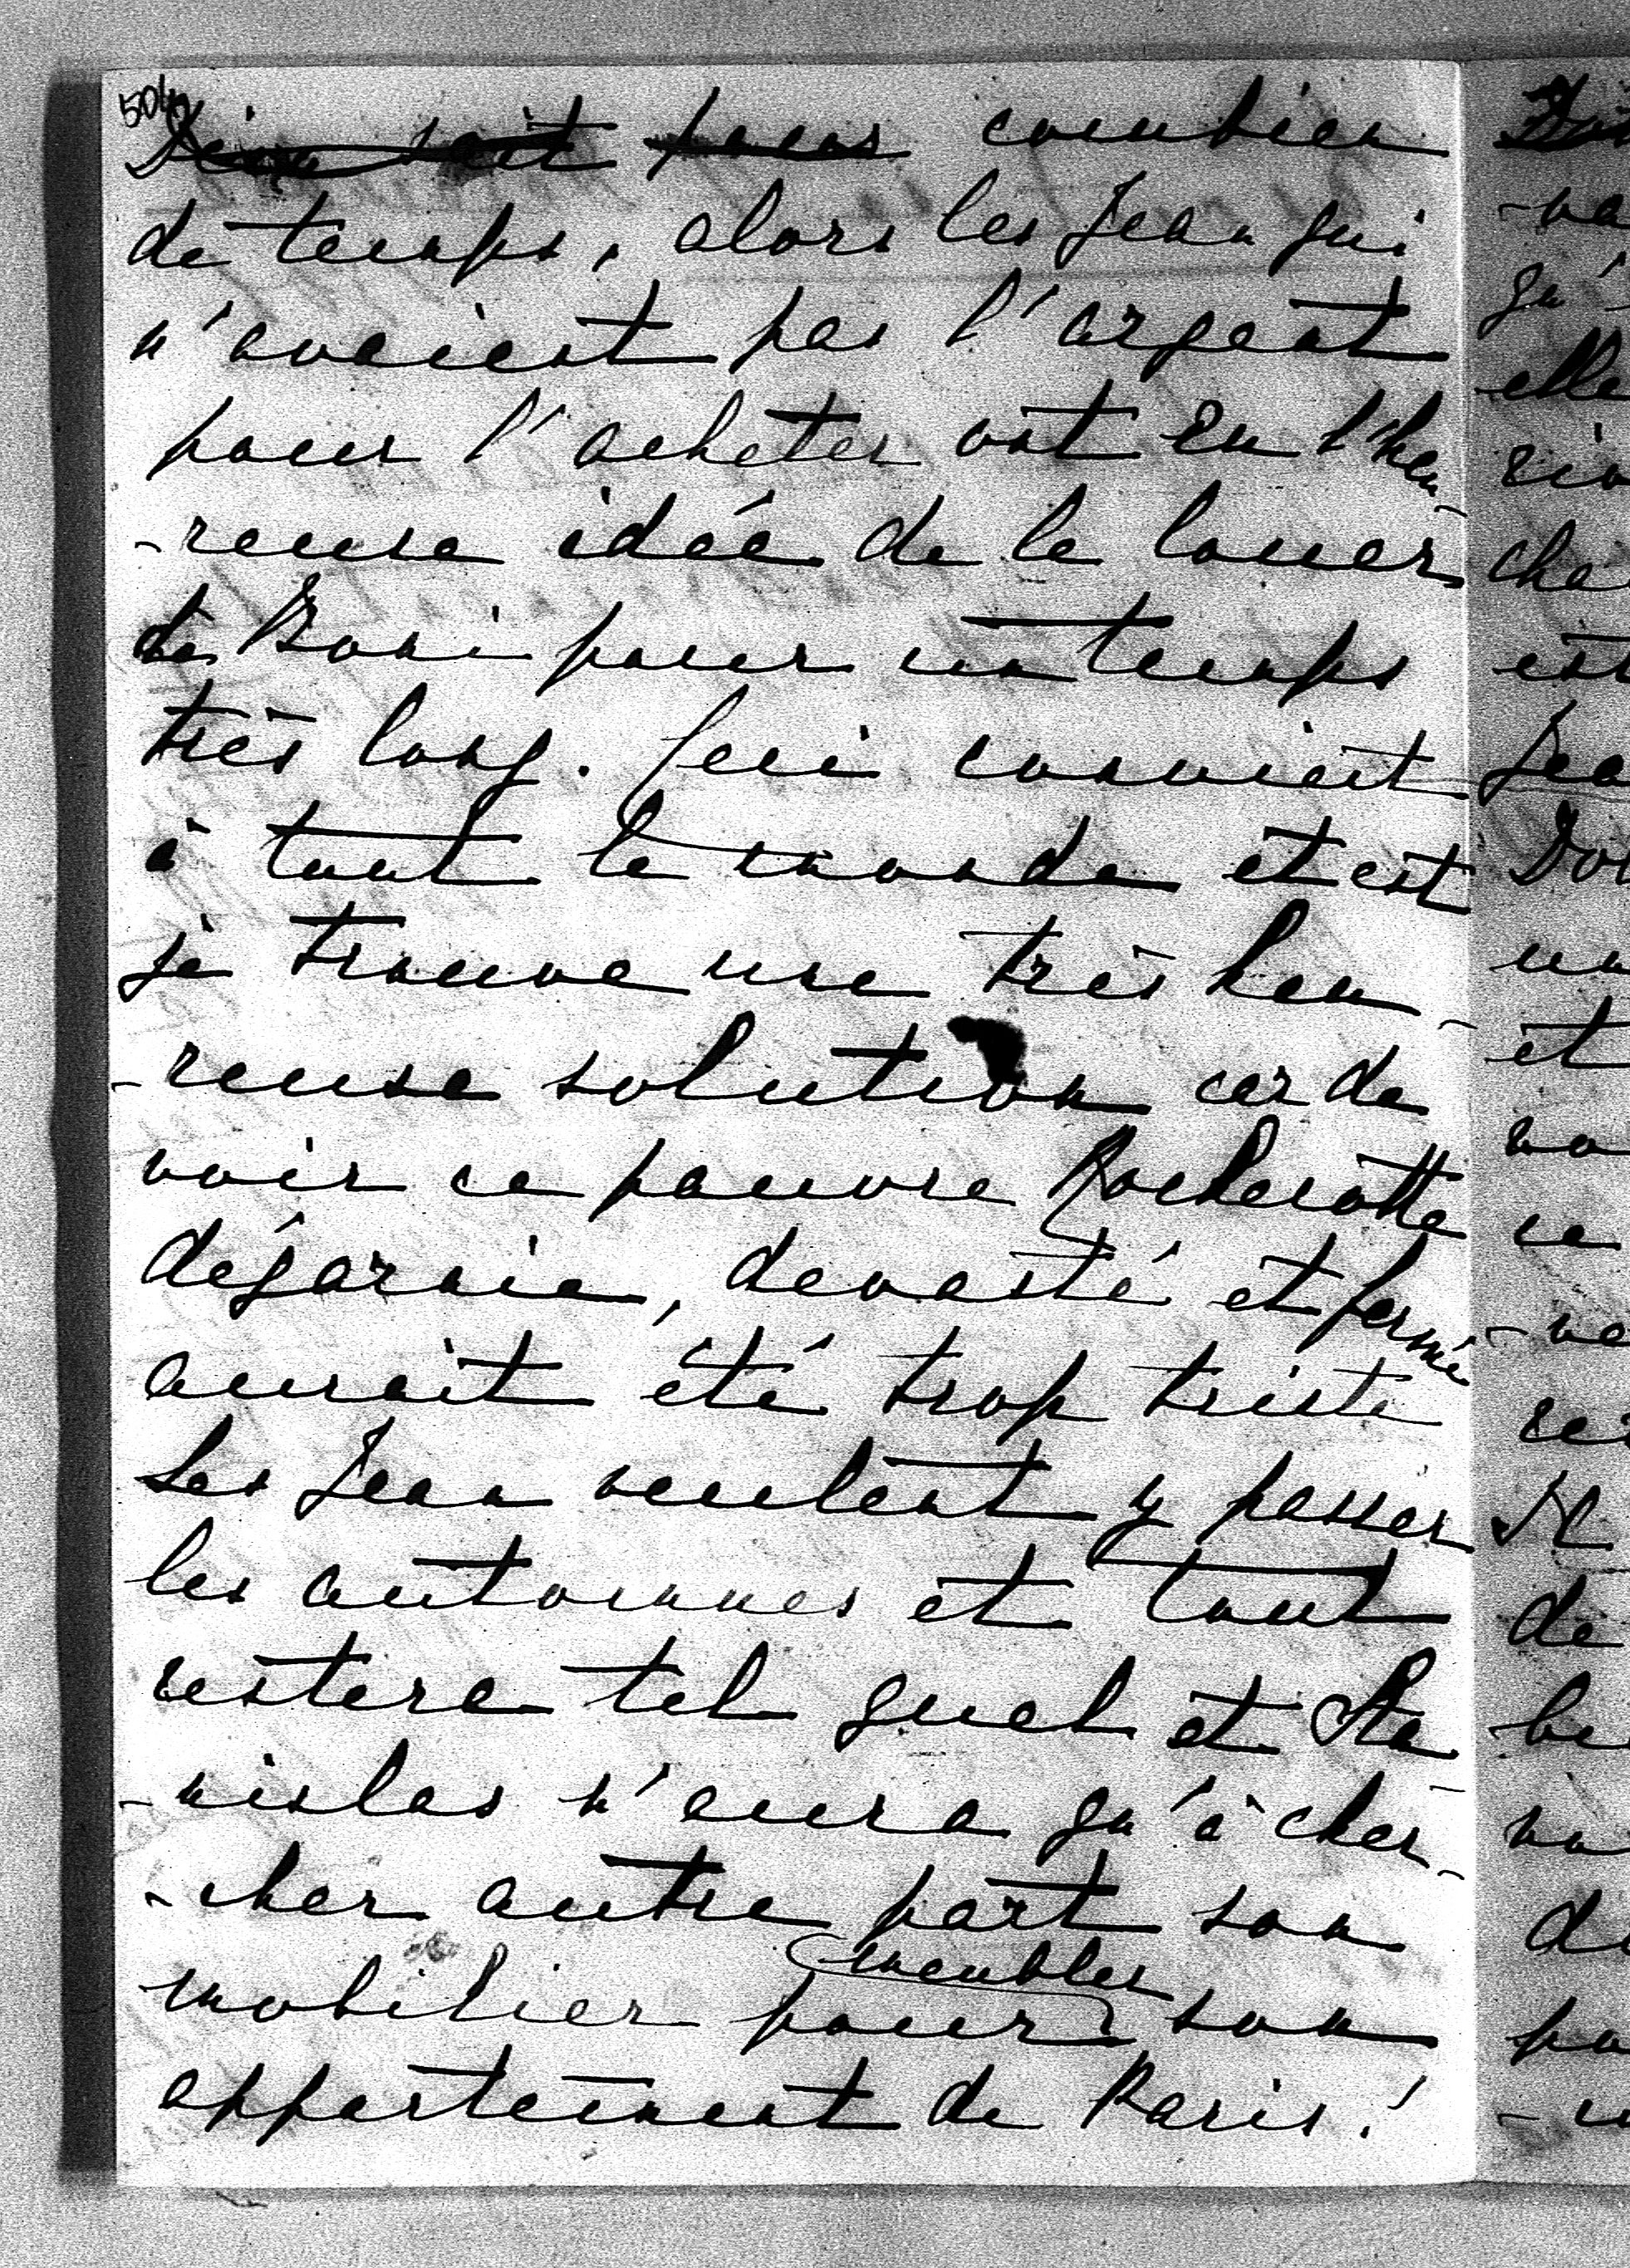 504
Dieu sait pour combien
de temps, alors les Jean qui
n'avaient pas l'argent
pour l'acheter ont eu l'heu-
-reuse idée de le louer
de Boni pour un temps
très long. Ceci convient
à tout le monde et est
je trouve une très heu-
-reuse solution car de
voir ce pauvre Rochecotte
dégarnie, devasté et fermé
aurait été trop triste
Les Jean veulent y passer
les automnes et tout
restera tel quel et Sta-
-nislas n'aura qu'à cher-
-cher autre part son
mobilier pour meubler son
appartement de Paris!